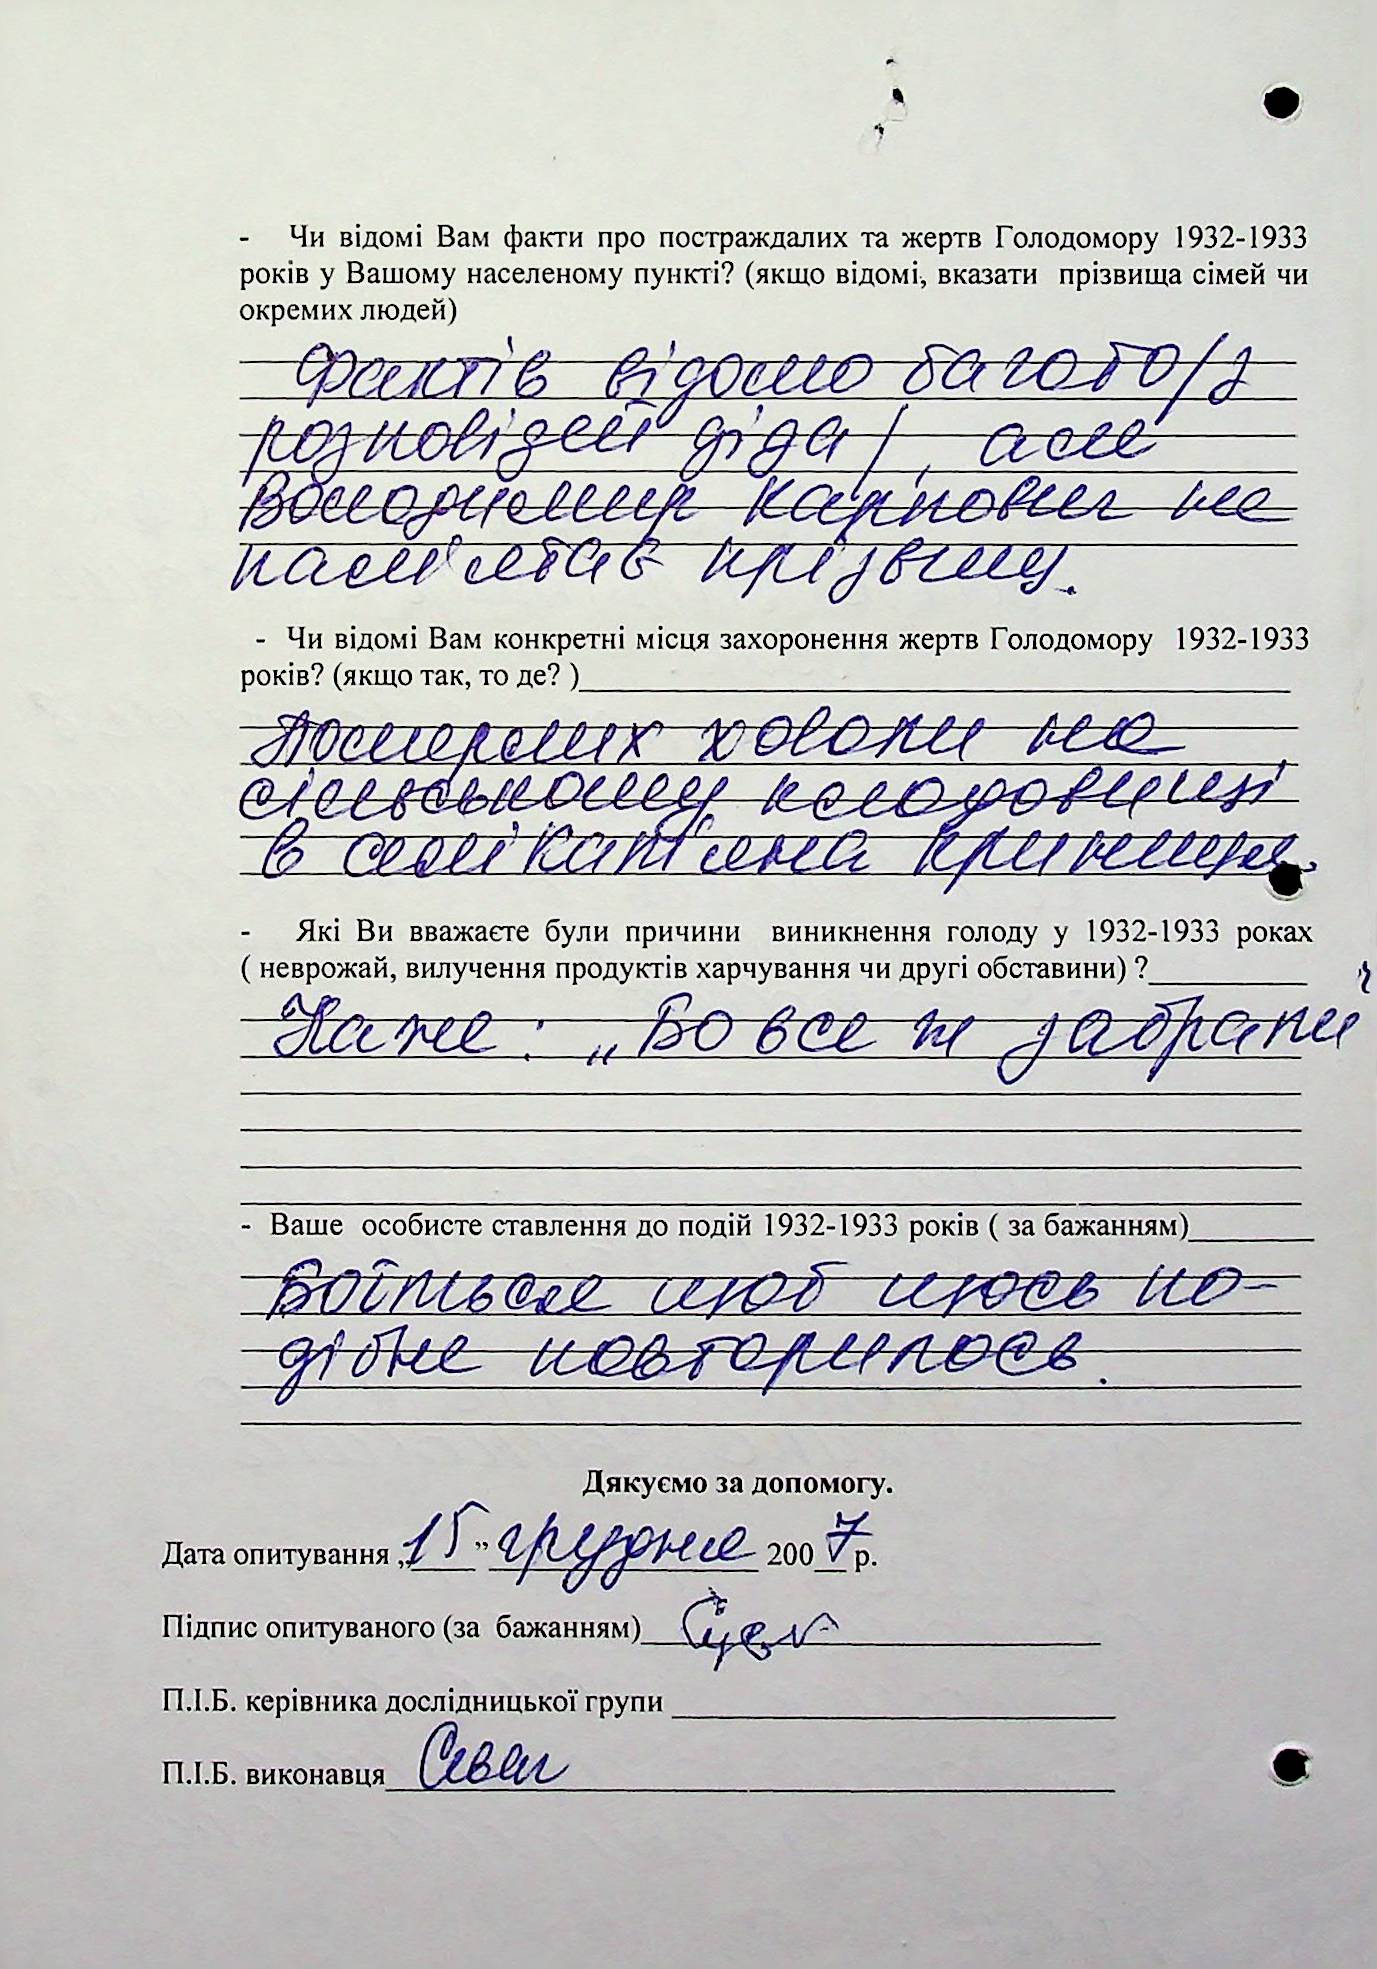 - Чи відомі Вам факти про постраждалих та жертв Голодомору 1932-1933
років у Вашому населеному пункті? (якщо відомі, вказати прізвища сімей чи
окремих людей)
Фактів відомо багато /з
розповідей діда/, але
Володимир Карпович не
пам'ятав прізвищ.
- Чи відомі Вам конкретні місця захоронення жертв Голодомору 1932-1933
років? (якщо так, то де? )
Померлих ховали на
сільському кладовищі
в селі Кам'яна Криниця.
- Які Ви вважаєте були причини виникнення голоду у 1932-1933 роках
( неврожай, вилучення продуктів харчування чи другі обставини) ?
Каже: „Бо все ж забрали"
- Ваше особисте ставлення до подій 1932-1933 років ( за бажанням)
Боїться щоб щось по-
дібне повторилось.
Дякуємо за допомогу.
Дата опитування „15” грудня 2007 р.
Підпис опитуваного (за бажанням)
П.І.Б. керівника дослідницької групи
П.І.Б. виконавця